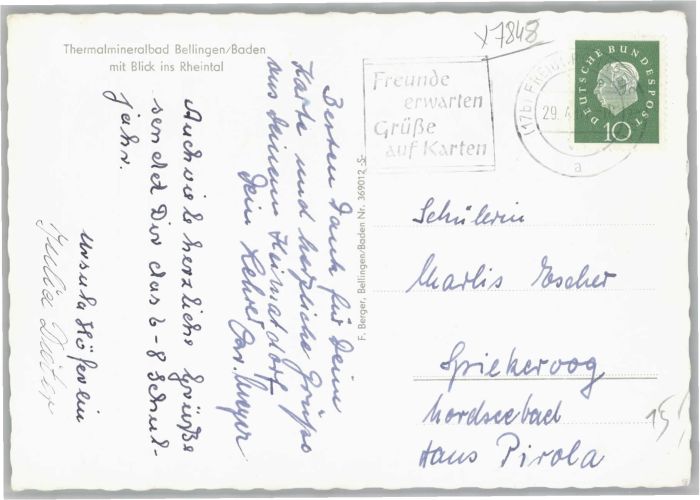 Thermalmineralbad Bellingen/Baden
mit Blick ins Rheintal
x 7848
Freunde
erwarten
Grüße
auf Karten
(17b) FREIBU
29. 4.
a
DEUTSCHE BUNDESPOST
10
Besten Dank für Deine
Karte und herzliche Grüße
aus Deinem Heimatdorf
Dein Lehrer
Auch viele herzliche Grüße
sendet Dir das 6-8 Schul-
jahr.
Ursula Höferlin
Julia
F. Berger, Bellingen/Baden Nr. 369012 -S-
Schülerin
Marlis Escher
Spiekeroog
Nordseebad
Haus Pirola